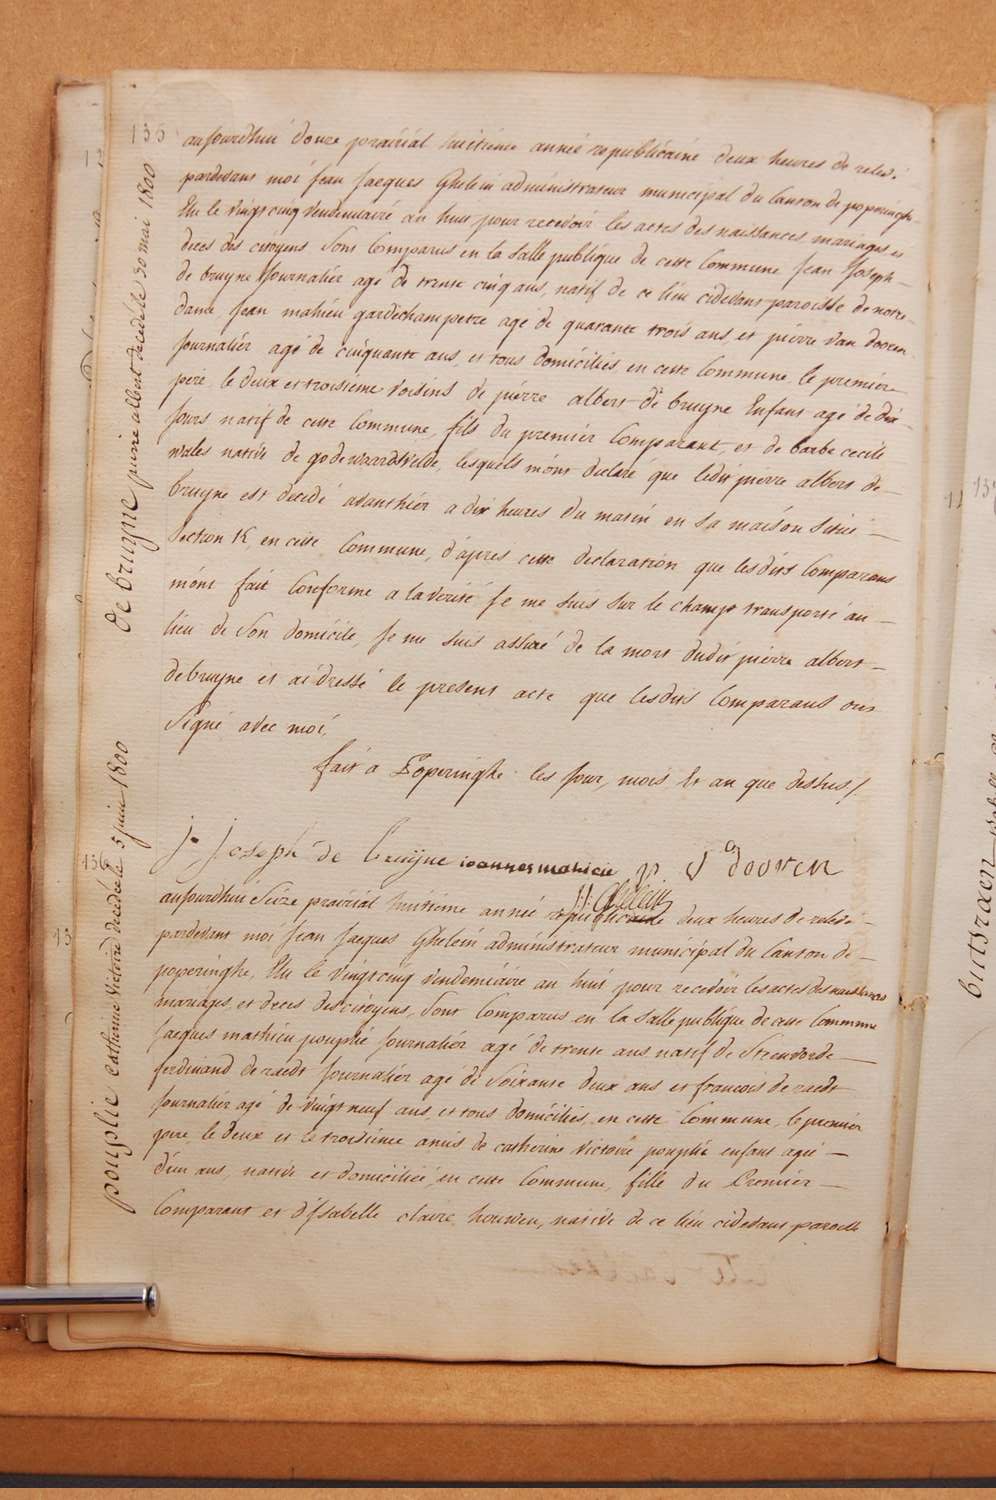 135
aujourdhui douze prairial huitième année republicaine deux heures de relevé
pardevant moi jean jacques Ghelein administrateur municipal du Canton de poperinghe
Elu le vingt cinq vendemiaire an huit pour recevoir les actes des naissances, mariages et
deces des citoyens sont Comparus en la salle publique de cette Commune jean joseph
de bruyne journalier agé de trente cinq ans, natif de ce lieu cidevant paroisse de notre
dame, jean mahieu gardechampetre agé de quarante trois ans, et pierre van dooren
journalier agé de cinquante ans, et tous domiciliés en cette Commune, le premier
pere, le deux et troisieme voisins de pierre albert de bruyne Enfant agé de dix
jours natif de cette Commune, fils du premier Comparant, et de barbe cecile
wales native de godewaardvelde, lesquels m'ont declaré que ledit pierre albert de
bruyne est decedé avanthier a dix heures du matin en sa maison située
Section K, en cette Commune, d'apres cette declaration que lesdits Comparans
m'ont fait Conforme a la verité je me suis sur le champs transporté au
lieu de son domicile, je me suis assuré de la mort dudit pierre albert
debruyne et ai dressé le present acte que lesdits Comparans ont
signé avec moi,
fait a Poperinghe les jour, mois Et an que dessus /
j: joseph de bruyne ioannes mahieu p. v dooren
JJ Ghelein
de bruyne pierre albert decedé le 30 mai 1800
136
aujourdhui seize prairial huitième année republicaine deux heures de relevé
pardevant moi jean jacques Ghelein administrateur municipal du Canton de
poperinghe, Elu le vingt cinq vendemiaire an huit pour recevoir les actes des naissances
mariages, et deces des citoyens, sont Comparus en la salle publique de cette Commune
jacques mathieu pouplié journalier agé de trente ans natif de
ferdinand de raedt journalier agé de soixante deux ans et francois de raedt
journalier agé de vingt neuf ans, et tous domiciliés, en cette Commune, le premier
pere, le deux et le troisieme amis de catherine victoire pouplié enfant agé
d'un ans, native et domiciliée en cette Commune, fille du Premier
Comparant et d'isabelle claire houwen, native de ce lieu cidevant paroisse
pouplié catherine victoire decedé le 5 juin 1800